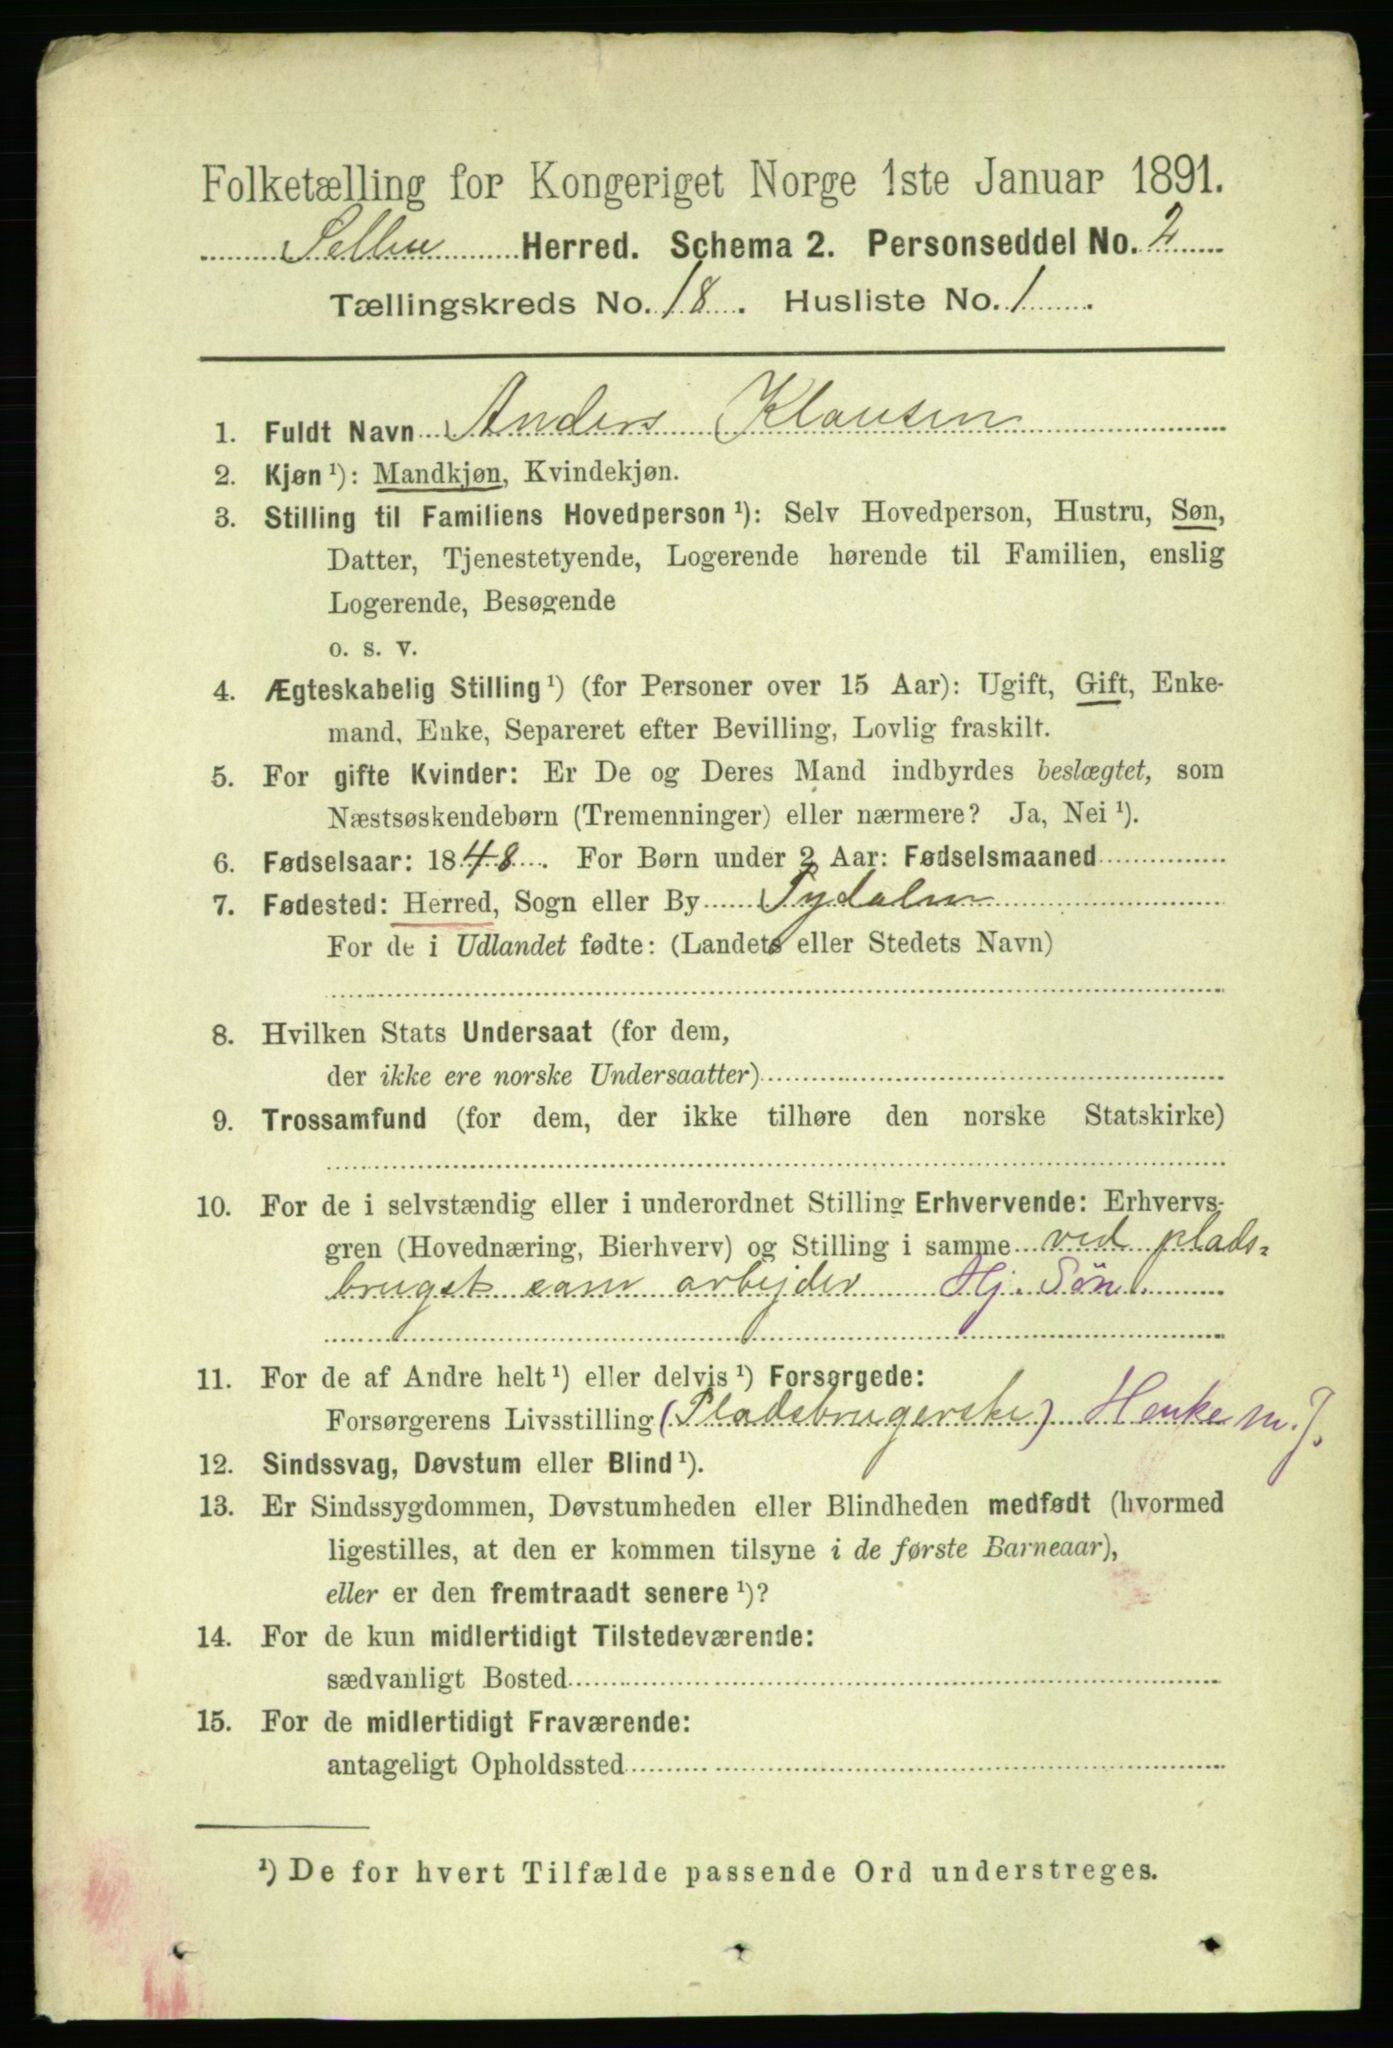 Folketælling for Kongeriget Norge 1ste Januar 1891.
Selbu Herred. Schema 2. Personseddel No. 2
Tællingskreds No. 18. Husliste No. 1.
1. Fuldt Navn Anders Klausen
2. Kjøn ¹): Mandkjøn, Kvindekjøn.
3. Stilling til Familiens Hovedperson ¹): Selv Hovedperson, Hustru, Søn,
Datter, Tjenestetyende, Logerende hørende til Familien, enslig
Logerende, Besøgende
o. s. v.
4. Ægteskabelig Stilling ¹) (for Personer over 15 Aar): Ugift, Gift, Enke-
mand, Enke, Separeret efter Bevilling, Lovlig fraskilt.
5. For gifte Kvinder: Er De og Deres Mand indbyrdes beslægtet, som
Næstsøskendebørn (Tremenninger) eller nærmere? Ja, Nei ¹).
6. Fødselsaar: 1848. For Børn under 2 Aar: Fødselsmaaned
7. Fødested: Herred, Sogn eller By Tydalen
For de i Udlandet fødte: (Landets eller Stedets Navn)
8. Hvilken Stats Undersaat (for dem,
der ikke ere norske Undersaatter)
9. Trossamfund (for dem, der ikke tilhøre den norske Statskirke)
10. For de i selvstændig eller i underordnet Stilling Erhvervende: Erhvervs-
gren (Hovednæring, Bierhverv) og Stilling i samme ved plads-
bruget som arbejder Hj. Søn
11. For de af Andre helt ¹) eller delvis ¹) Forsørgede:
Forsørgerens Livsstilling (Pladsbrugerske) Henke m. J.
12. Sindssvag, Døvstum eller Blind ¹).
13. Er Sindssygdommen, Døvstumheden eller Blindheden medfødt (hvormed
ligestilles, at den er kommen tilsyne i de første Barneaar),
eller er den fremtraadt senere ¹)?
14. For de kun midlertidigt Tilstedeværende:
sædvanligt Bosted
15. For de midlertidigt Fraværende:
antageligt Opholdssted
¹) De for hvert Tilfælde passende Ord understreges.